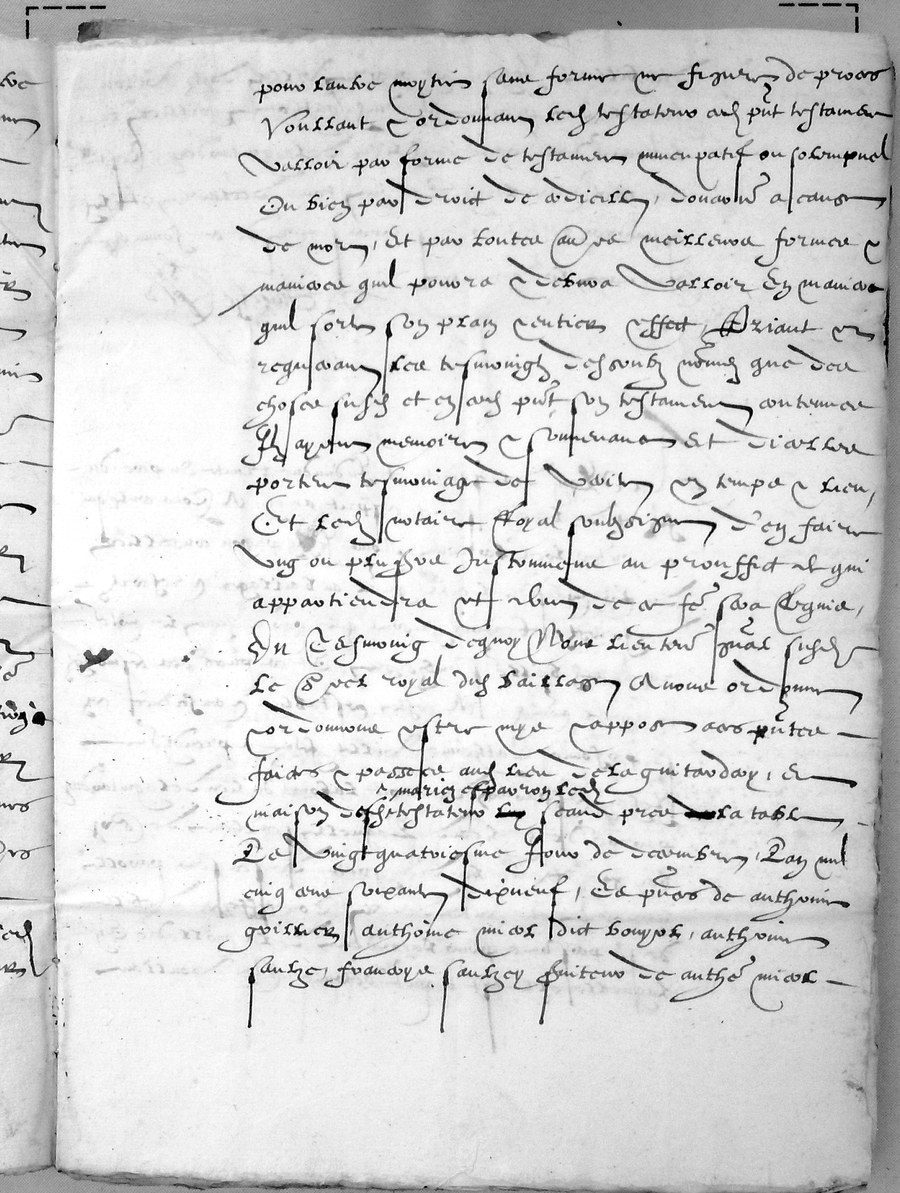 pour lautre moytie sans forme ne figure de proces
Voullant & ordonnant led testateur ced pnt testament
Valloir par forme de testament nuncupatif ou solempnel
Ou bien par droict de codicille, donacion a cause
de mort, Et par toutes aultres meilleures formes &
manieres quil pourra & debvra Valloir En maniere
quil sorte son plain & entier effect, Priant &
requerant les tesmoingz dessoubz nomez que des
choses susd et en ced pnt son testament contenues
Ilz ayent memoire & souvenance Et dicelles
porter tesmoniage de Verite en temps & lieu,
Et led notaire Royal soubzsigne den faire
Ung ou plusrs Instrumens au prouffict de qui
appartiendra
En Tesmoing dequoy Nous lieutent gnal susd
le Seel royal dud bailliage Avons ordonne
& ordonnons estre mys & appose a ces pntes
faictes & passees aud lieu de la guitarderye, En
maison desd testateur seans pres la table
Le Vingtquatriesme Jour de decembre, Lan mil
cinq cens soixante dixneuf, Es pnces de anthoine
guillier, anthoine micol dict bourgot, anthoine
saulze, francoys saulzey serviteur de anthe micol